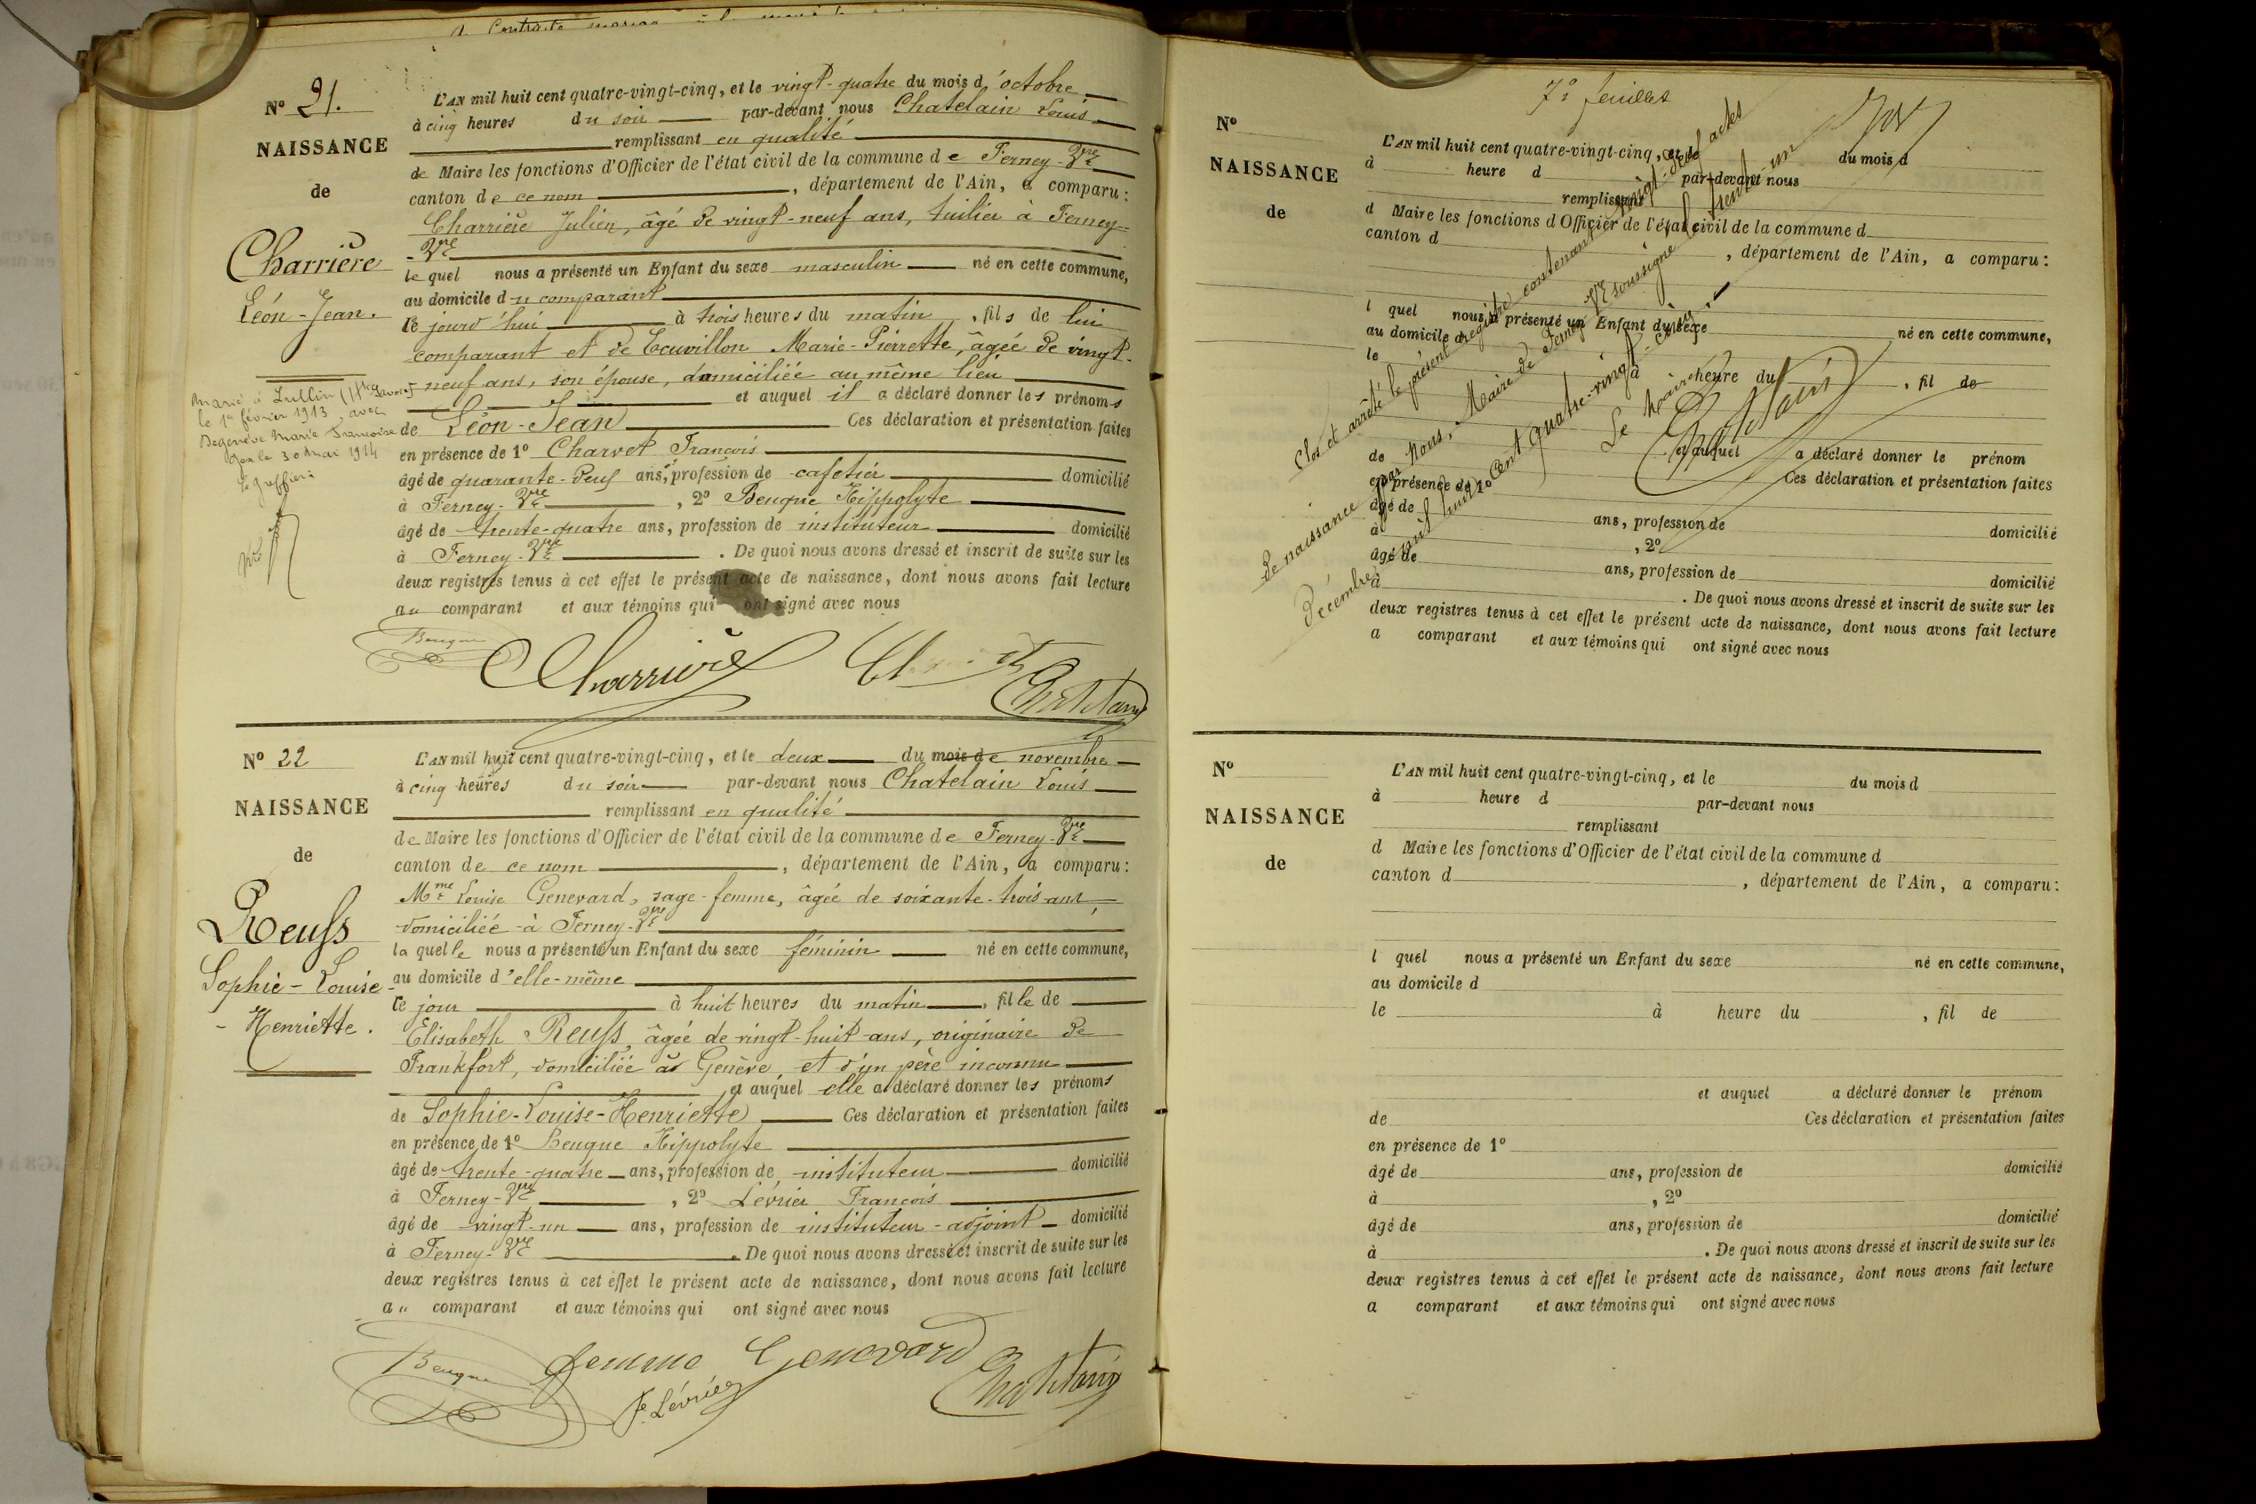 Nº 21.
NAISSANCE
de
Charrière
Léón-Jean.
Marié à Lullin (Hte Savoie)
le 1er février 1913, avec
Degenève Marie Françoise
Gex le 30 mai 1914
Le greffier:
L'AN mil huit cent quatre-vingt-cinq, et le vingt-quatre du mois d'octobre
à cinq heures du soir par-devant nous Chatelain Louis
remplissant en qualité
de Maire les fonctions d'Officier de l'état civil de la commune de Ferney-Vre
canton de ce nom, département de l'Ain, a comparu:
Charrière Julien, âgé de vingt-neuf ans, tuilier à Ferney-
-Vre
le quel nous a présenté un Enfant du sexe masculin né en cette commune,
au domicile du comparant
le jourd'hui à trois heures du matin, fils de lui
comparant et de Ecuvillon Marie-Pierrette, âgée de vingt-
neuf ans, son épouse, domiciliée au même lieu
et auquel il a déclaré donner les prénoms
de Léon-Jean Ces déclaration et présentation faites
en présence de 1º Charvet François
âgé de quarante-deux ans, profession de cafetier domicilié
à Ferney-Vre, 2º Beuque Hippolyte
âgé de trente-quatre ans, profession de instituteur domicilié
à Ferney-Vre. De quoi nous avons dressé et inscrit de suite sur les
deux registres tenus à cet effet le présent acte de naissance, dont nous avons fait lecture
au comparant et aux témoins qui ont signé avec nous
Beuque
Charrière
Chatelain
Nº 22
NAISSANCE
de
Reuss
Sophie-Louise-
-Henriette.
L'AN mil huit cent quatre-vingt-cinq, et le deux du mois de novembre
à cinq heures du soir par-devant nous Chatelain Louis
remplissant en qualité
de Maire les fonctions d'Officier de l'état civil de la commune de Ferney-Vre
canton de ce nom, département de l'Ain, a comparu:
Mme Louise Genevard, sage-femme, âgée de soixante-trois ans,
domiciliée à Ferney-Vre
la quelle nous a présenté un Enfant du sexe féminin né en cette commune,
au domicile d'elle-même
le jour à huit heures du matin, fille de
Elisabeth Reuss, âgée de vingt-huit ans, originaire de
Frankfort, domiciliée à Genève, et d'un père inconnu
et auquel elle a déclaré donner les prénoms
de Sophie-Louise-Henriette Ces déclaration et présentation faites
en présence de 1º Beuque Hippolyte
âgé de trente-quatre ans, profession de instituteur domicilié
à Ferney-Vre, 2º Lévrier François
âgé de vingt-un ans, profession de instituteur-adjoint domicilié
à Ferney-Vre. De quoi nous avons dressé et inscrit de suite sur les
deux registres tenus à cet effet le présent acte de naissance, dont nous avons fait lecture
au comparant et aux témoins qui ont signé avec nous
Beuque
femme Genevard
F. Lévrier
Chatelain
7e feuillet
Nº
NAISSANCE
de
L'AN mil huit cent quatre-vingt-cinq, et le du mois d
à heure d par-devant nous
remplissant
d Maire les fonctions d'Officier de l'état civil de la commune d
canton d, département de l'Ain, a comparu:
l quel nous a présenté un Enfant du sexe né en cette commune,
au domicile d
le à heure du, fil de
et auquel a déclaré donner le prénom
de Ces déclaration et présentation faites
en présence de 1º
âgé de ans, profession de domicilié
à, 2º
âgé de ans, profession de domicilié
à. De quoi nous avons dressé et inscrit de suite sur les
deux registres tenus à cet effet le présent acte de naissance, dont nous avons fait lecture
a comparant et aux témoins qui ont signé avec nous
Clos et arrêté le présent registre contenant vingt-deux actes
de naissance par Nous, Maire de Ferney-Vre soussigné le trente-un
décembre mil huit cent quatre-vingt-cinq.
Le Maire
Chatelain
Nº
NAISSANCE
de
L'AN mil huit cent quatre-vingt-cinq, et le du mois d
à heure d par-devant nous
remplissant
d Maire les fonctions d'Officier de l'état civil de la commune d
canton d, département de l'Ain, a comparu:
l quel nous a présenté un Enfant du sexe né en cette commune,
au domicile d
le à heure du, fil de
et auquel a déclaré donner le prénom
de Ces déclaration et présentation faites
en présence de 1º
âgé de ans, profession de domicilié
à, 2º
âgé de ans, profession de domicilié
à. De quoi nous avons dressé et inscrit de suite sur les
deux registres tenus à cet effet le présent acte de naissance, dont nous avons fait lecture
a comparant et aux témoins qui ont signé avec nous